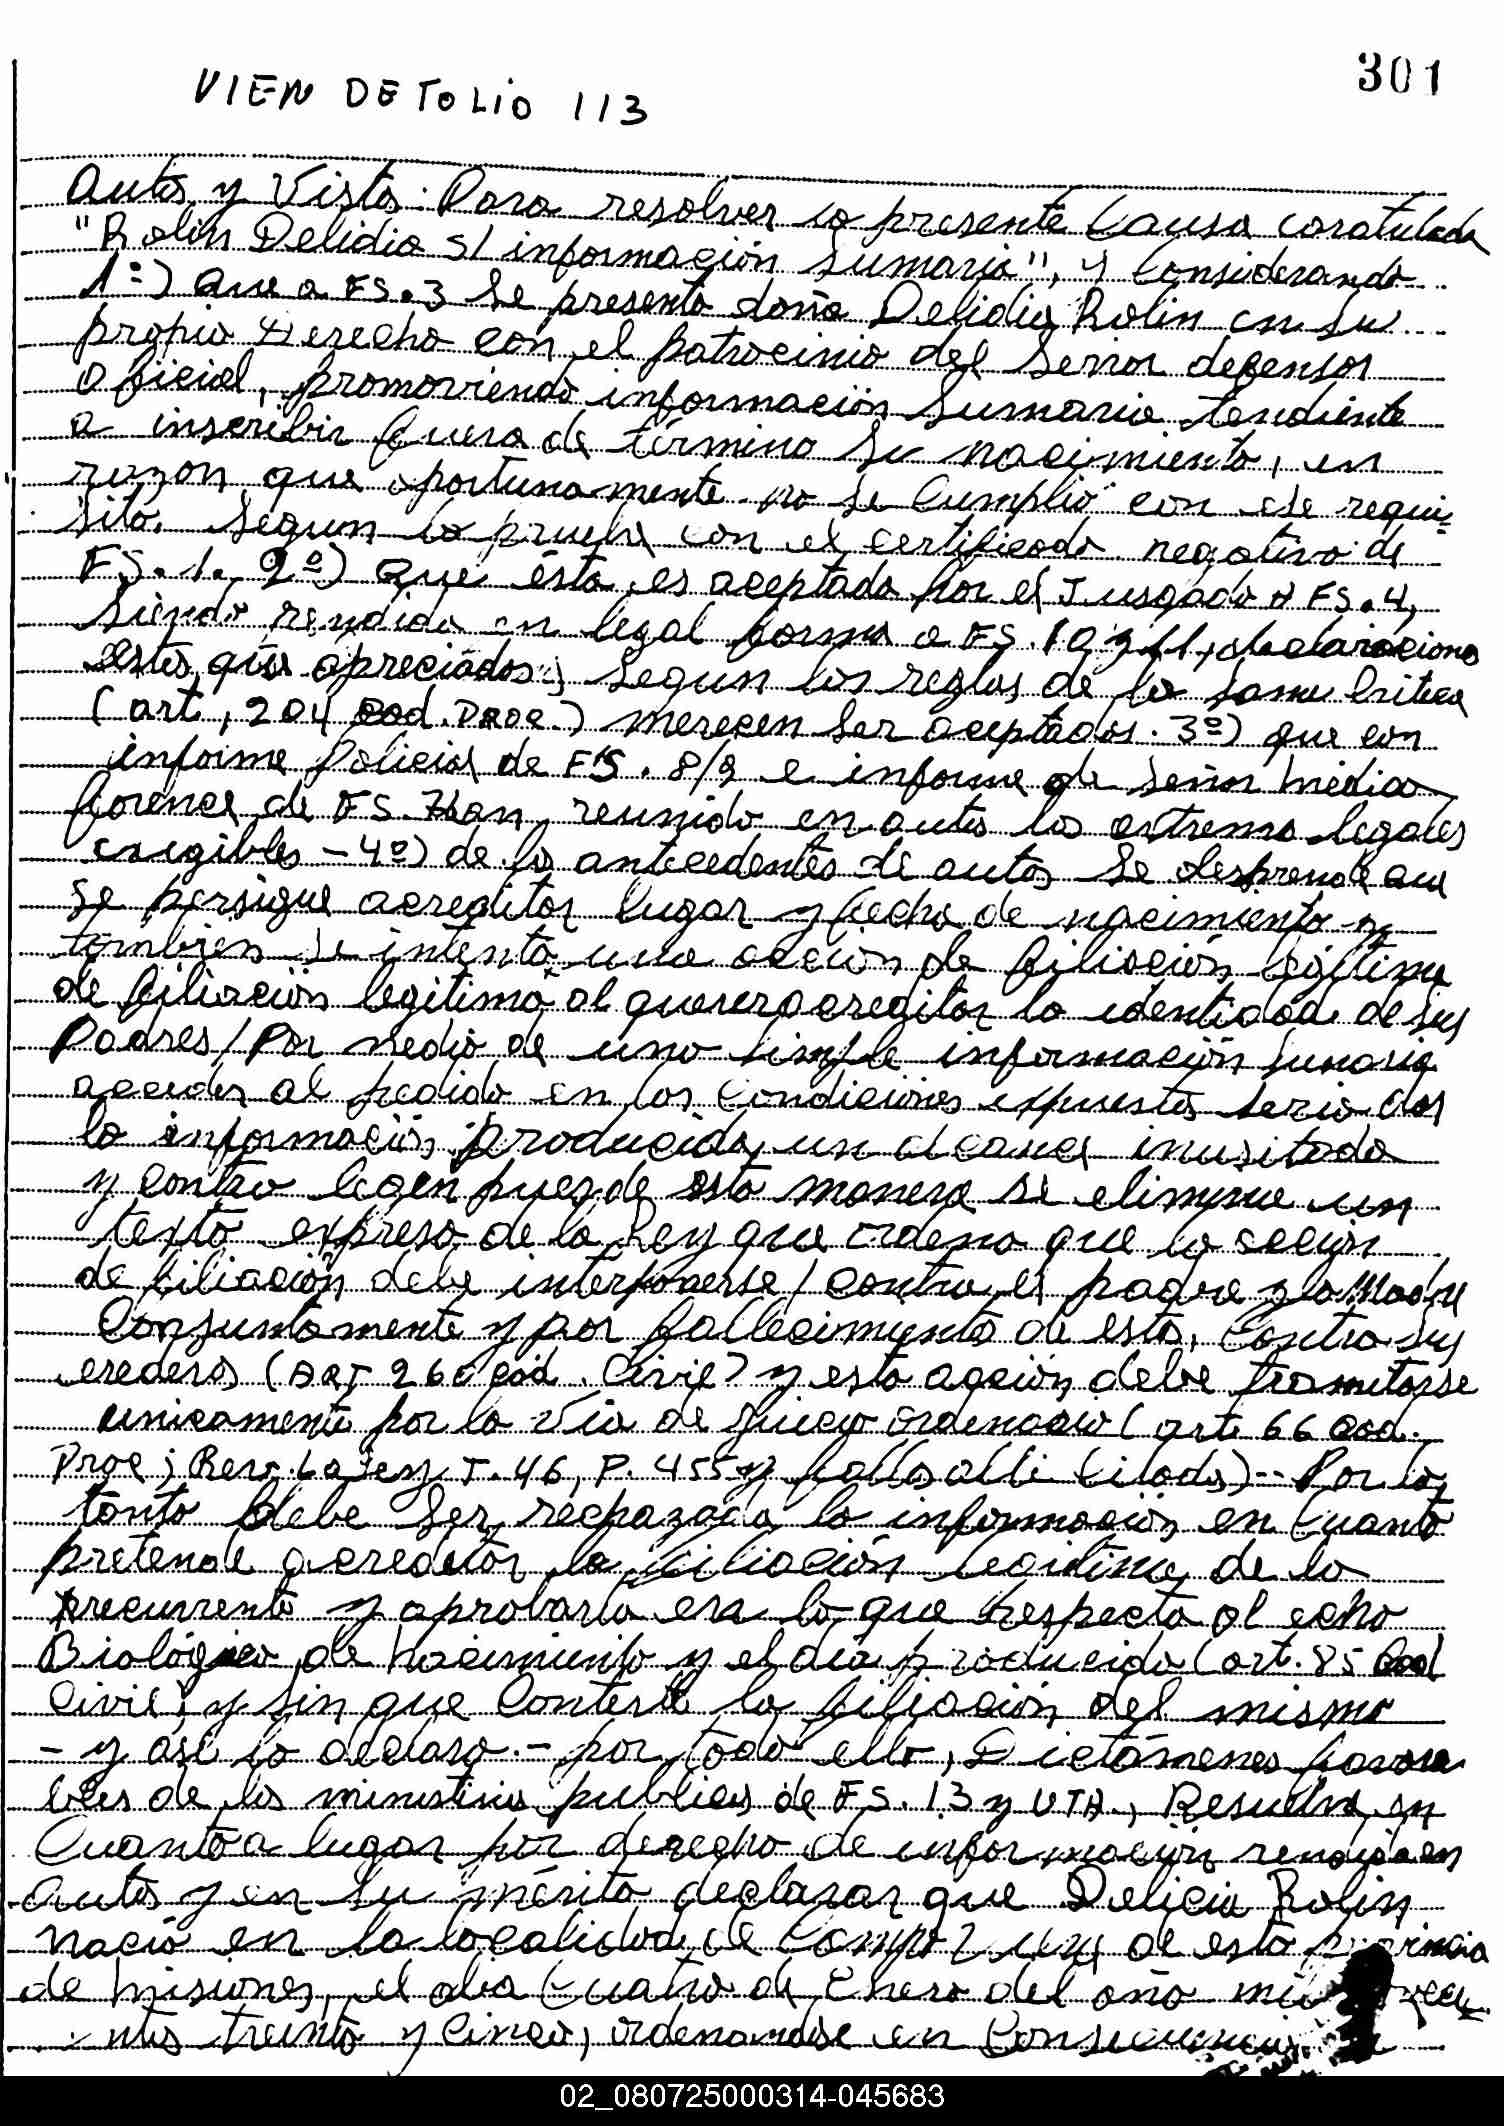 301
VIEN DE FOLIO 113
Autos y Vistos: Para resolver la presente Causa caratulada
"Rolin Delidia S/ información Sumaria", y Considerando
1º) Que a FS. 3 Se presenta doña Delidia Rolin en su
propio Derecho con el patrocinio del Señor defensor
Oficial, promoviendo información Sumaria tendiente
a inscribir fuera de término su nacimiento, en
razon que oportunamente no se Cumplió con ese requi-
sito. Segun lo prueba con el Certificado negativo de
FS. 1. 2º) Que ésta es aceptada por el Jusgado a FS. 4,
Siendo rendida en legal forma a FS. 10 y 11, declaraciones
estas que apreciadas Segun las reglas de la Sana Critica
(art, 204 Cod. Proc.) merecen Ser aceptadas. 3º) que con
informe Policial de FS. 8/9 e informe de Señor Médico
forence de FS. 7 han reunido en autos los extremo legales
exigibles - 4º) de los antecedentes de autos Se desprende que
se persigue acreditar lugar y fecha de nacimiento y
tambien se intenta una acción de filiación legitima
de filiación legitima al querer acreditar la identidad de sus
Padres / Por medio de una simple información Sumaria
acceder al pedido en las Condiciones expuestas seria dar
la información producida un alcance inusitado
y contra legen pues de esta manera se elimina un
texto expreso de la Ley que ordena que la acción
de filiación debe interponerse / contra el padre y la Madre
Conjuntamente y por fallecimiento de esta, Contra sus
erederos (ART 260 cod. Civil) y esta acción debe tramitarse
unicamente por la Via de Juicio Ordenario (art 66 Cod.
Proc; Rev. La Ley T. 46, P. 455 y fallos alli Citados) -- Por lo
tanto debe Ser rechazada la información en Cuanto
pretende acreditar la filiación legitima de la
recurrente y aprobarla en lo que respecta al echo
Biológico de nacimiento y el día producido (art. 85 Cod
Civil) y sin que Conteste la filiación del mismo
- y asi lo declaro. - por todo ello, Dictámenes favora
bles de los ministerios publicos de FS. 13 y VTA., Resuelvo en
Cuanto a lugar por derecho de información rendida en
autos y en su mérito declarar que Delicia Rolin
nació en la localidad de Campo de esta provincia
de misiones, el dia Cuatro de Enero del año mil novecie
ntos treinta y Cinco, ordenandose en Consecuencia
02_080725000314-045683